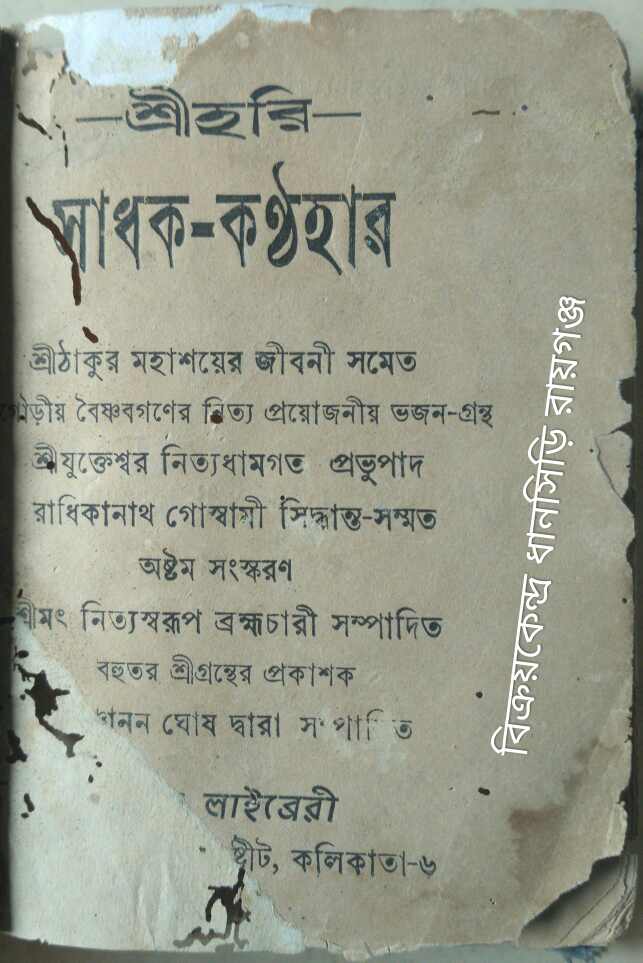 —শ্রীহরি—
সাধক-কণ্ঠহার
শ্রীঠাকুর মহাশয়ের জীবনী সমেত
গৌড়ীয় বৈষ্ণবগণের নিত্য প্রয়োজনীয় ভজন-গ্রন্থ
শ্রীযুক্তেশ্বর নিত্যধামগত প্রভুপাদ
রাধিকানাথ গোস্বামী সিদ্ধান্ত-সম্মত
অষ্টম সংস্করণ
শ্রীমৎ নিত্যস্বরূপ ব্রহ্মচারী সম্পাদিত
বহুতর শ্রীগ্রন্থের প্রকাশক
ঘোষ দ্বারা
লাইব্রেরী
ষ্ট্রীট, কলিকাতা-৬
বিক্রয়কেন্দ্র ধানসিড়ি রায়গঞ্জ